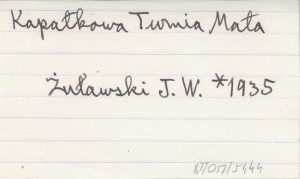 Kapałkowa Turnia Mała
Żuławski J. W. *1935
87/057/5444